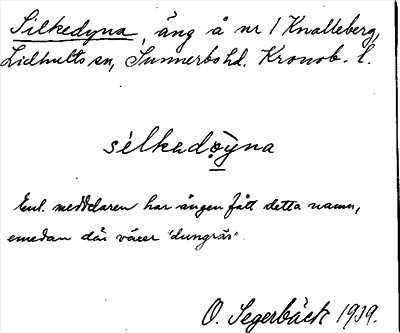 Silkedyna, äng å nr 1 Knalleberg,
Lidhults sn, Sunnerbo hd. Kronob. l.
silkadöyna
Enl. meddelaren har ängen fått detta namn,
emedan där växer "dungräs".
O. Segerbäck 1939.